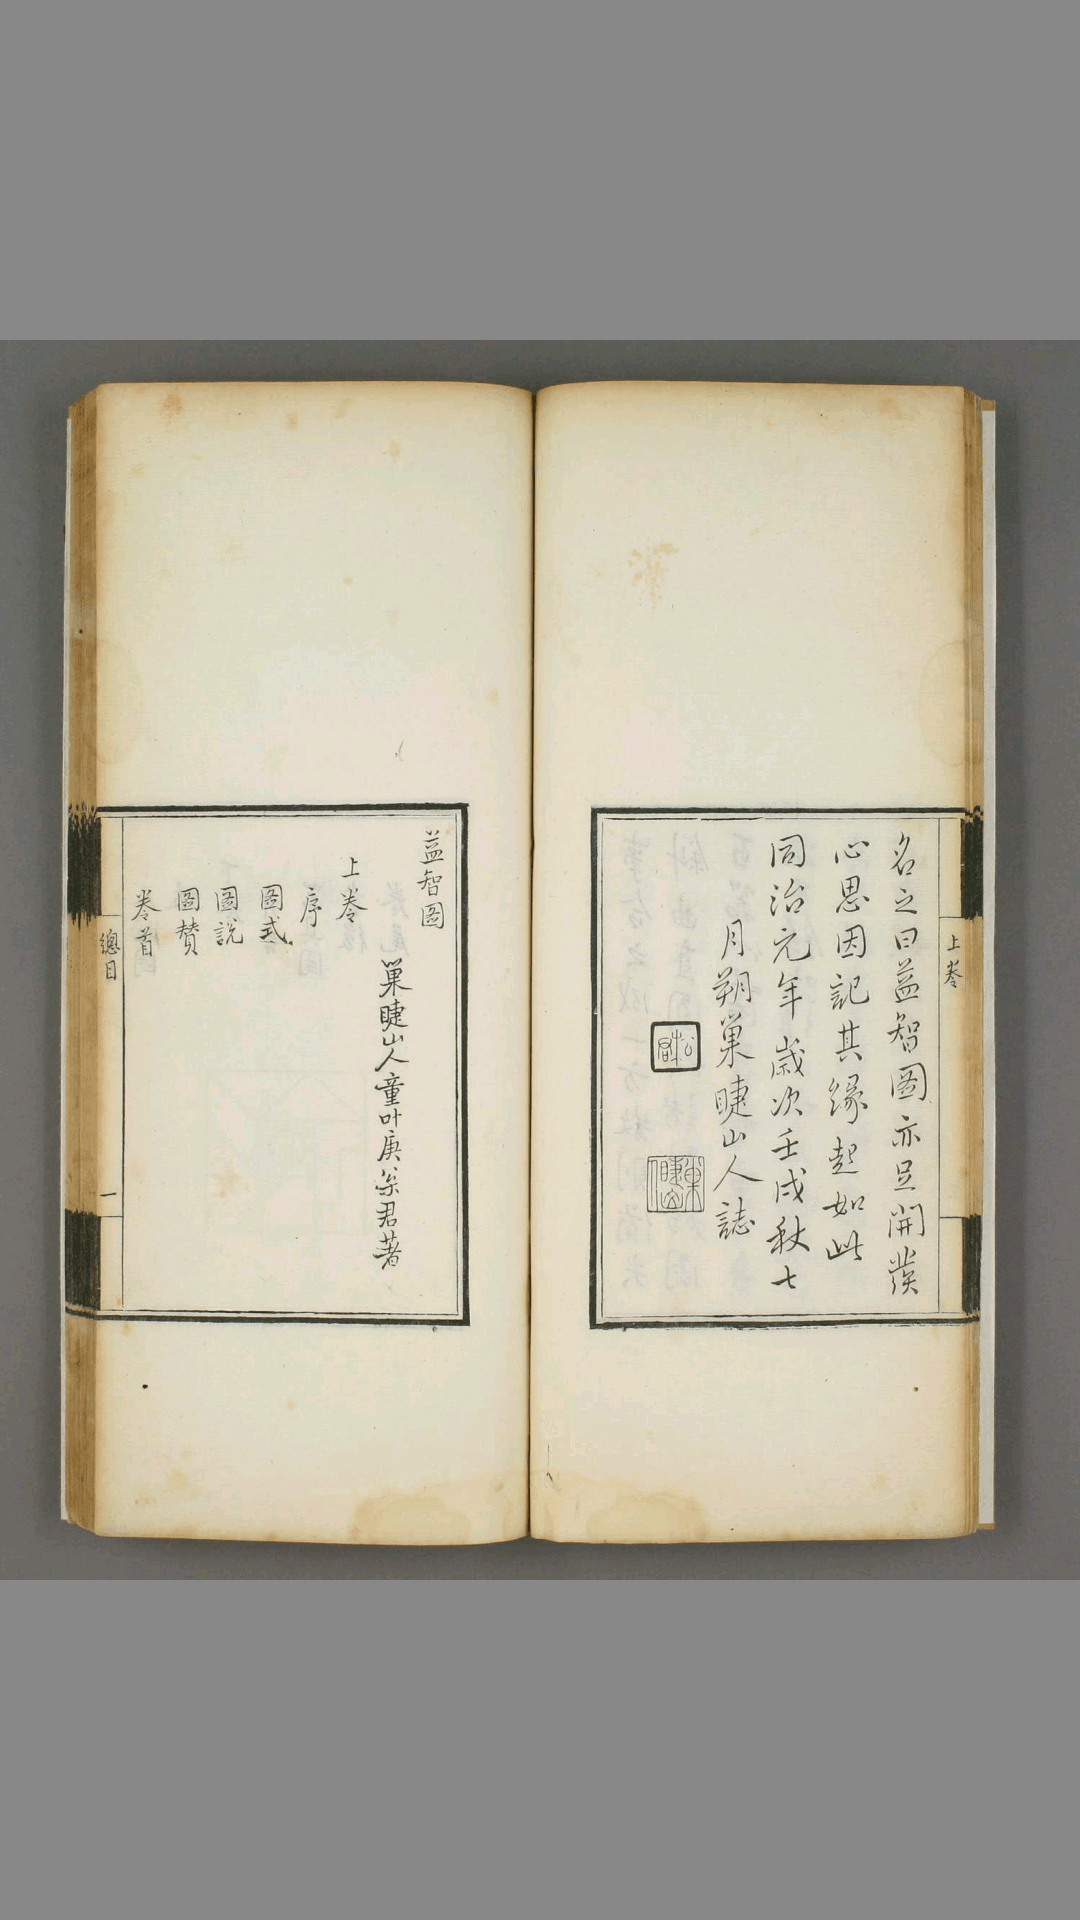 名之曰益智圖亦足開發
心思因記其緣起如此
同治元年歲次壬戌秋七
月朔巢睫山人誌
上卷
益智圖
巢睫山人童叶庚松君著
上卷
序
圖式
圖說
圖贊
卷首
總目
一